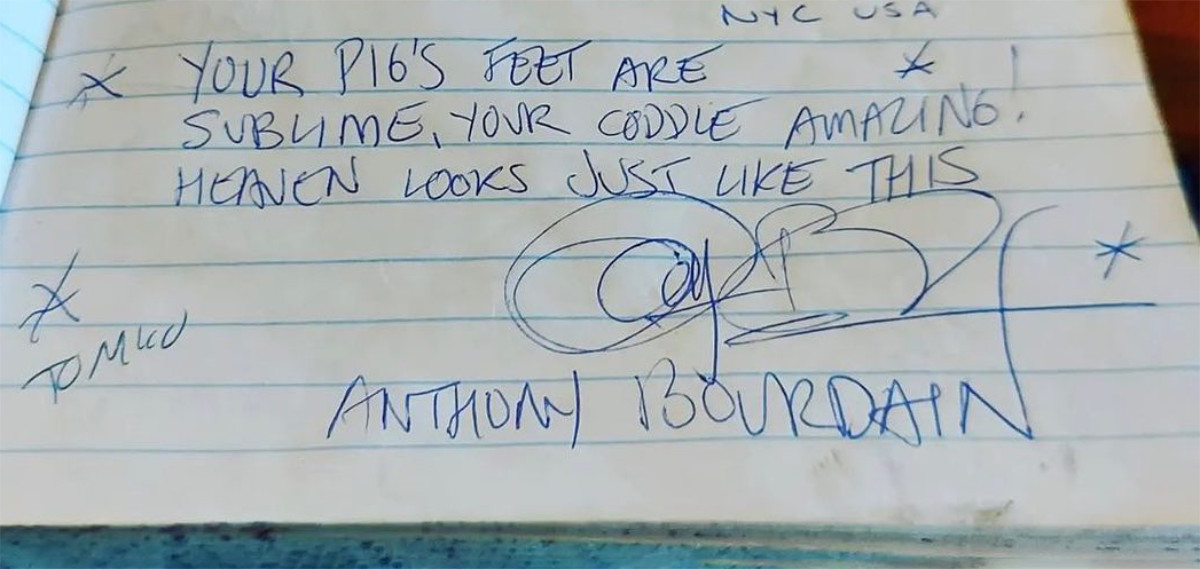 NYC USA
YOUR PIG'S FEET ARE
SUBLIME, YOUR CODDLE AMAZING!
HEAVEN LOOKS JUST LIKE THIS
ANTHONY BOURDAIN